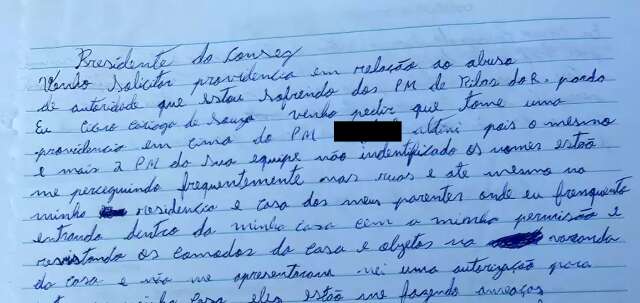 Presidente do Conseg
Venho solicitar providencia em relação ao abuso
de autoridade que estou sofrendo dos PM de Pilar do
Eu Souza venho pedir que tome uma
providencia em cima do PM pois o mesmo
e mais 2 PM da sua equipe não indentificado os nomes estão
me perceguindo frequentemente nas ruas e ate mesmo na
minha residencia e casa dos meus parentes onde eu frenquento
entrando dentro da minha casa cem a minha permissão e
revistando os comodos da casa e objetos na varanda
da casa e não me apresentaram nei uma autorização para
minha casa eles estão me fazendo ameaças